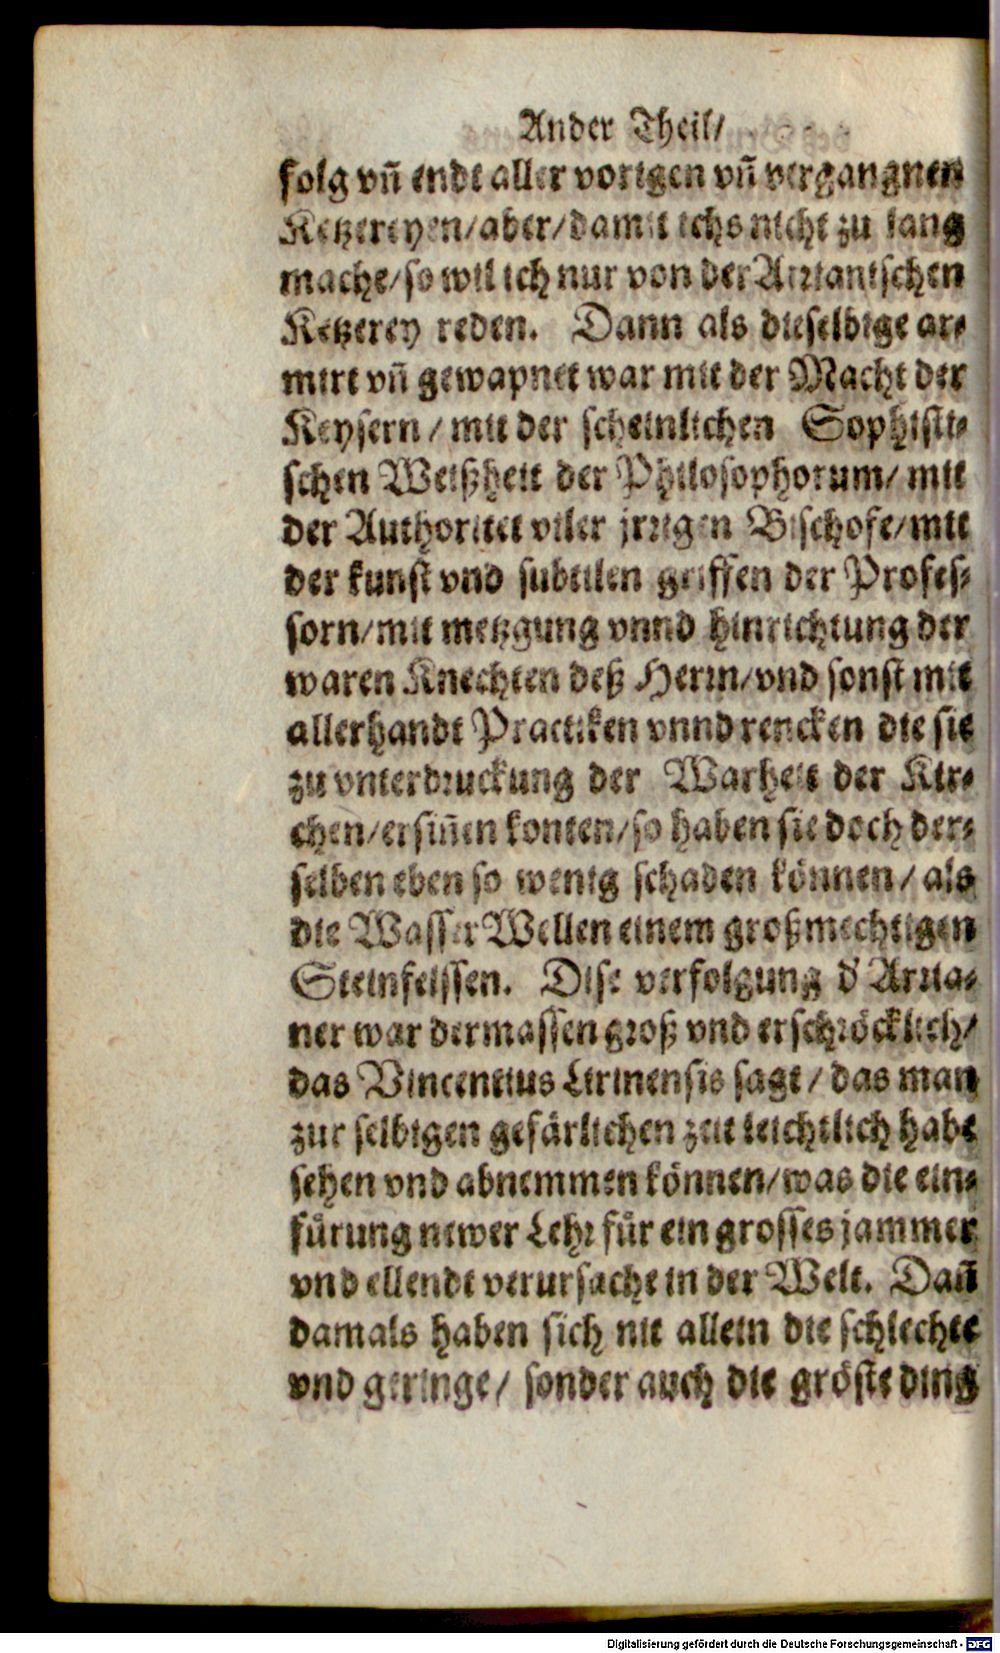 Ander Theil/
folg vñ endt aller vorigen vñ vergangnen
Ketzereyen/aber/damit ichs nicht zu lang
mache/so wil ich nur von der Arrianischen
Ketzerey reden. Dann als dieselbige ar-
mirt vñ gewapnet war mit der Macht der
Keysern/mit der scheinlichen Sophisti-
schen Weißheit der Philosophorum/mit
der Authoritet viler jrrigen Bischofe/mit
der kunst vnd subtilen griffen der Profes-
sorn/mit metzgung vnnd hinrichtung der
waren Knechten deß Herrn/vnd sonst mit
allerhandt Practiken vnnd rencken die sie
zu vnterdruckung der Warheit der Kir-
chen/ersiñen konten/so haben sie doch der-
selben eben so wenig schaden können/als
die Wasser Wellen einem großmechtigen
Steinfelssen. Dise verfolgung d' Arria-
ner war dermassen groß vnd erschröcklich/
das Vincentius Lirinensis sagt/das man
zur selbigen gefärlichen zeit leichtlich habe
sehen vnd abnemmen können/was die ein-
fürung newer Lehr für ein grosses jammer
vnd ellendt verursacht in der Welt. Dañ
damals haben sich nit allein die schlechte
vnd geringe/sonder auch die gröste ding
Digitalisierung gefördert durch die Deutsche Forschungsgemeinschaft - DFG